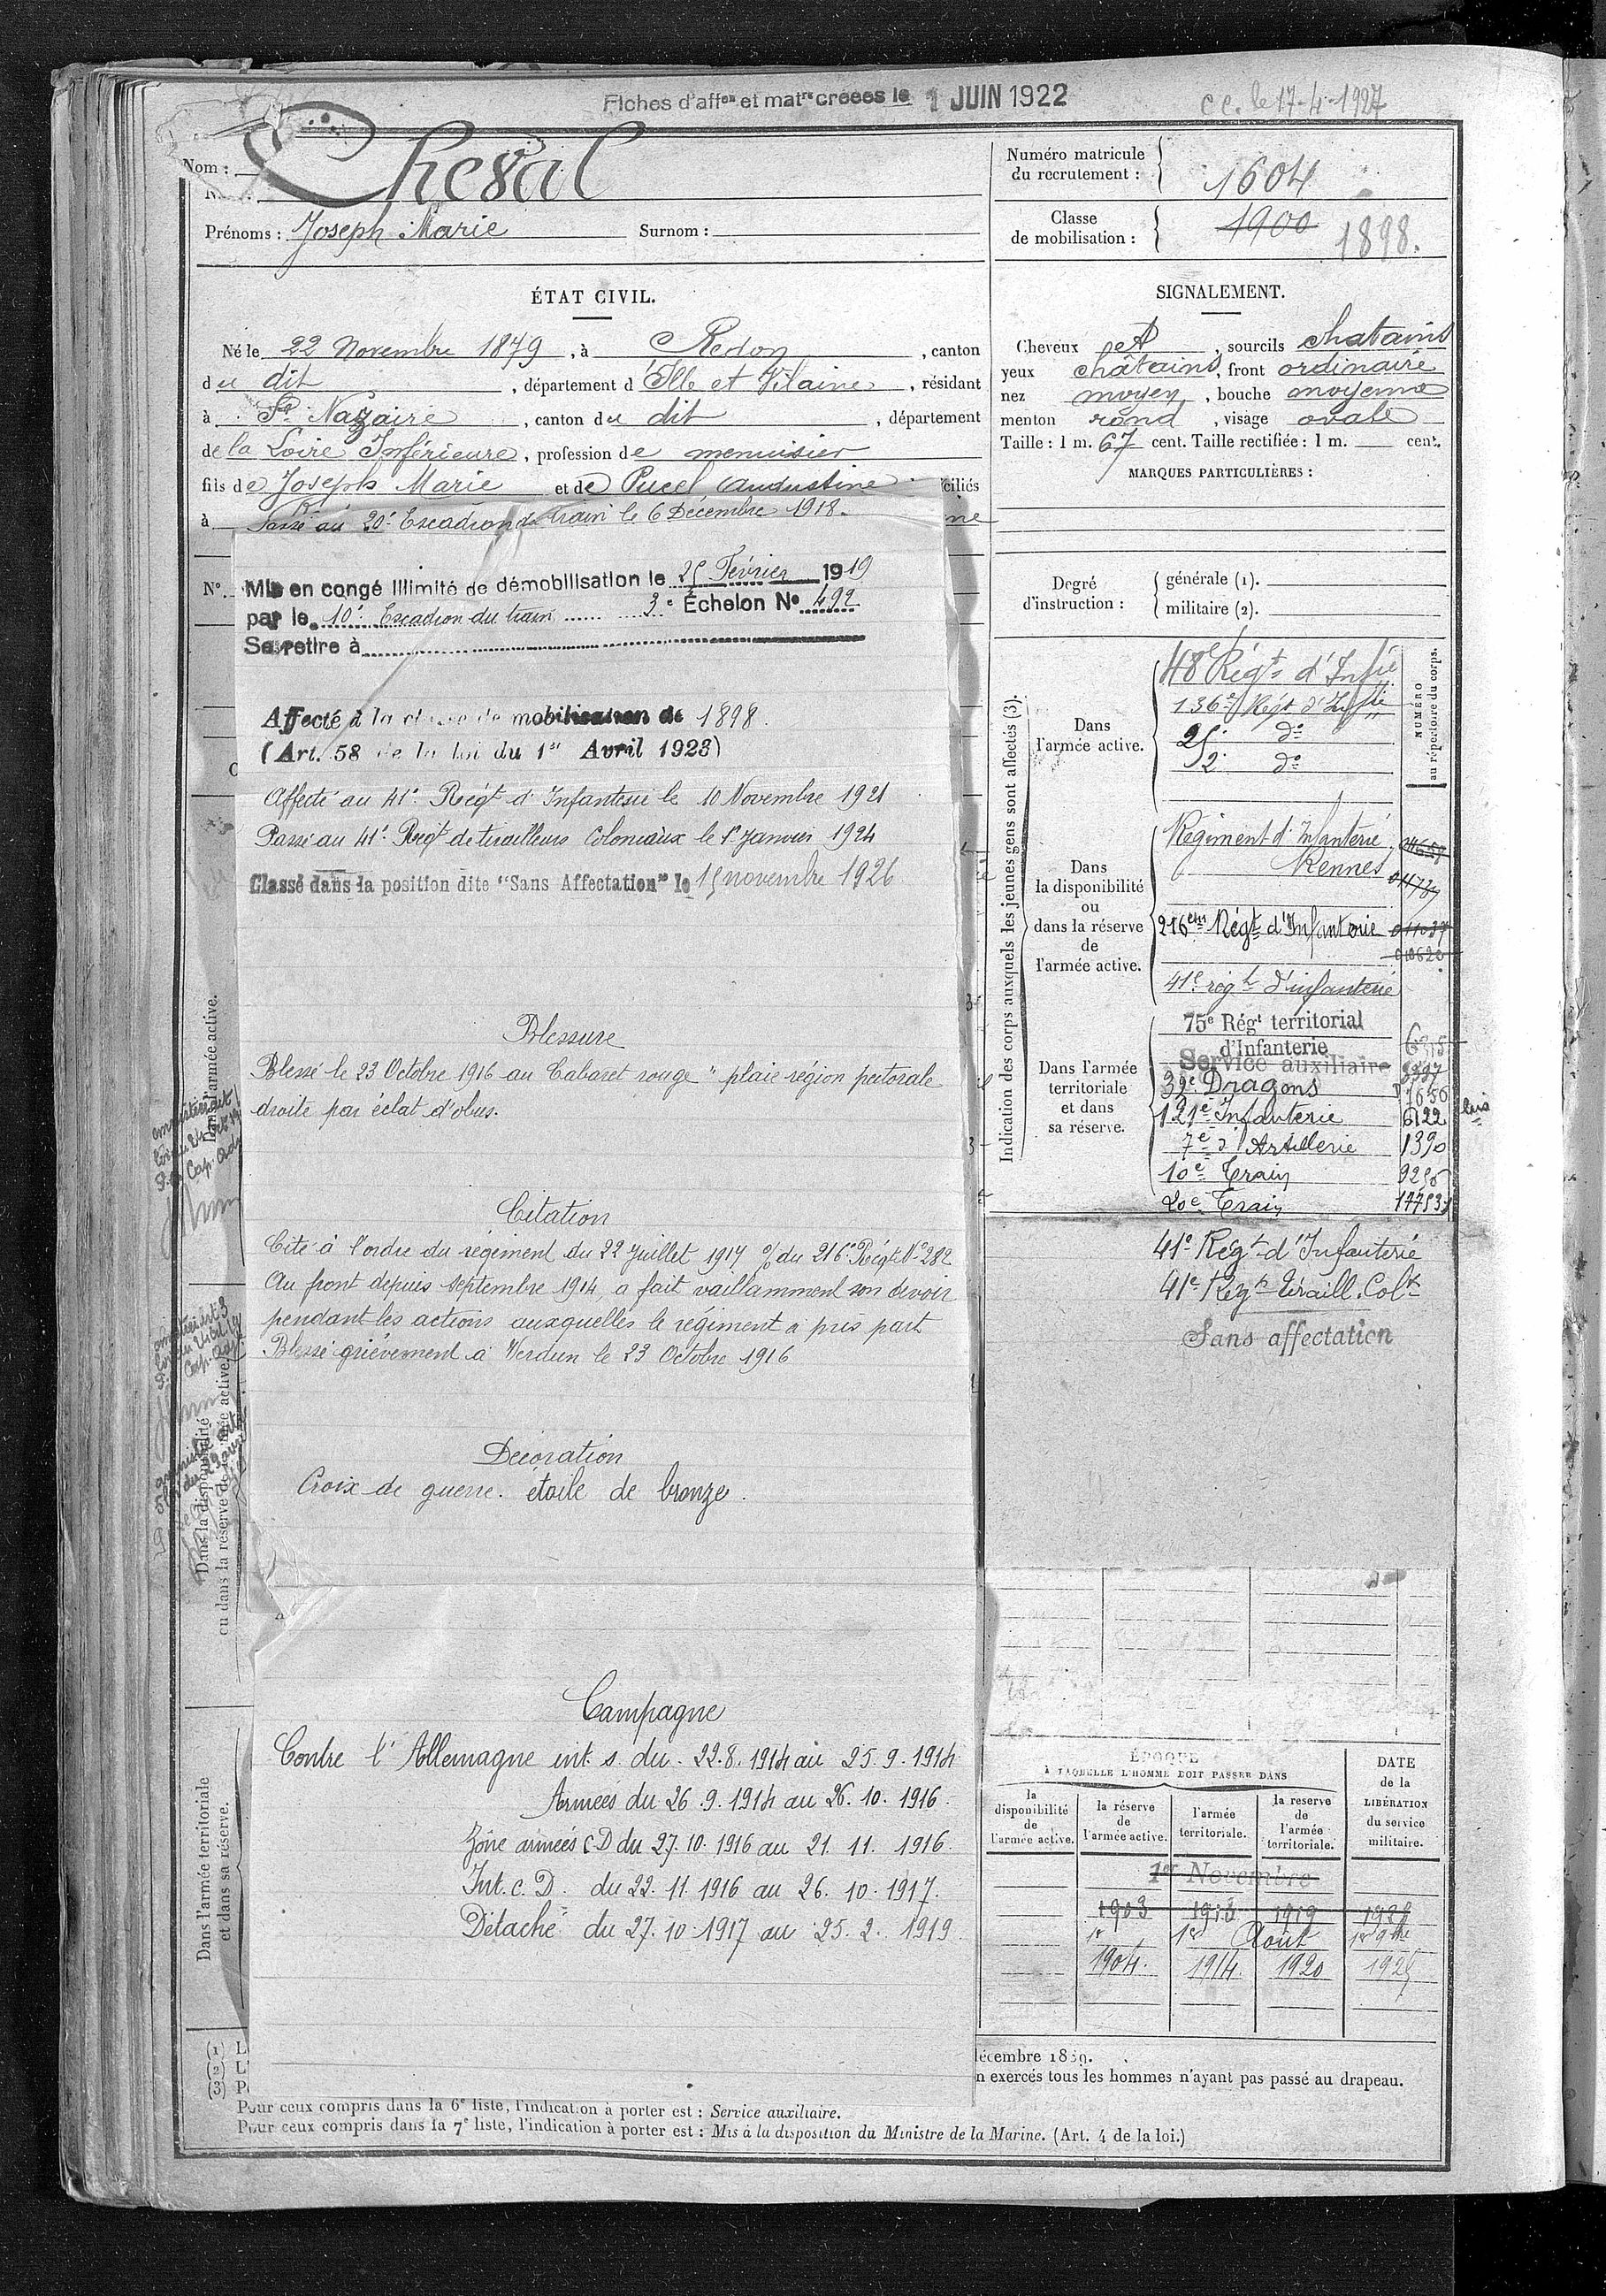 Fiches d'affon et matre créées le 1 JUIN 1922
c c. le 17-4-1927
Nom : Cheval
Prénoms : Joseph Marie Surnom :
Numéro matricule du recrutement : 1604
Classe de mobilisation : 1900 1898.
ÉTAT CIVIL.
Né le 22 Novembre 1879, à Redon, canton
du dit, département d'Ille et Vilaine, résidant
à St Nazaire, canton du dit, département
de la Loire Inférieure, profession de menuisier
fils de Joseph Marie et de Pucel Augustine ciliés
à Passé au 20e Escadron du train le 6 Décembre 1918.
SIGNALEMENT.
Cheveux et, sourcils chatains
yeux châtains, front ordinaire
nez moyen, bouche moyenne
menton rond, visage ovale
Taille : 1 m. 67 cent. Taille rectifiée : 1 m. cent.
MARQUES PARTICULIÈRES :
N°. Mis en congé illimité de démobilisation le 25 Février 1919
par le 10e Escadron du train 3e Échelon No 492
Se retire à
Affecté à la classe de mobilisation de 1898.
(Art. 58 de la loi du 1er Avril 1923)
Affecté au 41e Regt d'Infanterie le 10 Novembre 1921
Passé au 41e Regt de tirailleurs Coloniaux le 1er Janvier 1924
Classé dans la position dite "Sans Affectation" le 15 novembre 1926
Blessure
Blessé le 23 Octobre 1916 au Cabaret rouge "plaie région pectorale
droite par éclat d'obus.
Citation
Cité à l'ordre du régiment du 22 Juillet 1917 % du 216e Régt No 282
Au front depuis septembre 1914, a fait vaillamment son devoir
pendant les actions auxquelles le régiment a pris part
Blessé grièvement à Verdun le 23 Octobre 1916
Décoration
Croix de guerre. étoile de bronze.
Campagne
Contre l'Allemagne int. s. du 22.8.1914 au 25.9.1914
Armées du 26.9.1914 au 26.10.1916.
Zône armées C D du 27.10.1916 au 21.11.1916.
Int. C. D. du 22.11.1916 au 26.10.1917.
Détaché du 27.10.1917 au 25.2.1919
Degré d'instruction :
générale (1).
militaire (2).
Indication des corps auxquels les jeunes gens sont affectés (3).
NUMÉRO au répertoire du corps.
Dans l'armée active.
48e Régt d'Infie
136e Régt d'Infie
25e do
2e do
Dans la disponibilité ou dans la réserve de l'armée active.
Régiment d'Infanterie
Rennes
216em Régt d'Infanterie
41e régt d'infanterie
Dans l'armée territoriale et dans sa réserve.
75e Régt territorial
d'Infanterie
Service auxiliaire
39e Dragons
121e Infanterie 6122 bis
7e d'Artillerie 1390
10e Train
20e Train
41e Régt d'Infanterie
41e Régt tiraill. Colx
Sans affectation
Dans l'armée active.
Dans la disponibilité
ou dans la réserve de l'armée active.
Dans l'armée territoriale
et dans sa réserve.
ÉPOQUE
À LAQUELLE L'HOMME DOIT PASSER DANS
la disponibilité de l'armée active.
la réserve de l'armée active.
l'armée territoriale.
la reserve de l'armée territoriale.
DATE de la LIBÉRATION du service militaire.
1er Novembre
1903 1913 1919
1er 1er Août 1er 9bre
1904. 1914. 1920 1925
(1) L
(2) L'
(3) P
décembre 1889.
n exercés tous les hommes n'ayant pas passé au drapeau.
Pour ceux compris dans la 6e liste, l'indication à porter est : Service auxiliaire.
Pour ceux compris dans la 7e liste, l'indication à porter est : Mis à la disposition du Ministre de la Marine. (Art. 4 de la loi.)